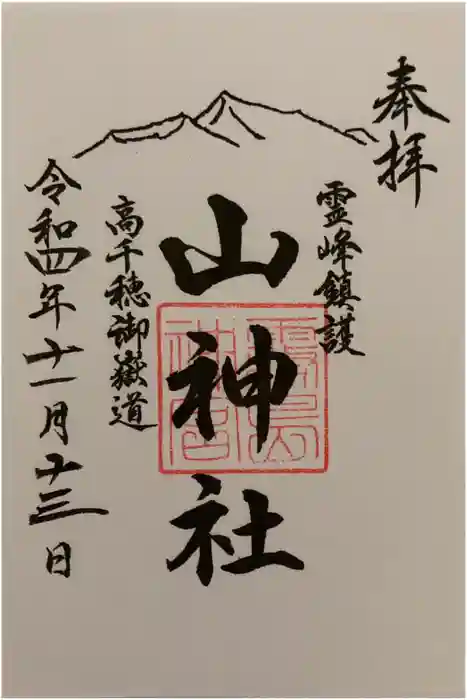 奉拝
霊峰鎮護
山神社
霧島神宮
高千穂御嶽道
令和四年十一月十三日